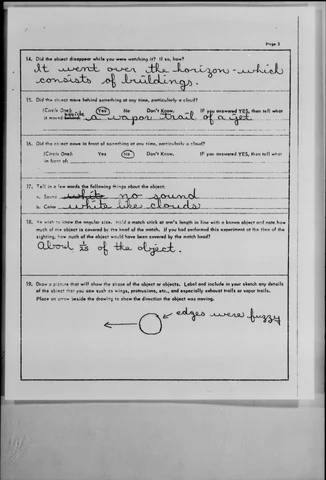 Page 3
14. Did the object disappear while you were watching it? If so, how?
It went over the horizon - which
consists of buildings.
15. Did the object move behind something at any time, particularly a cloud?
(Circle One): Yes No Don't Know. IF you answered YES, then tell what
it moved behind: inside a vapor trail of a jet
16. Did the object move in front of something at any time, particularly a cloud?
(Circle One): Yes No Don't Know. IF you answered YES, then tell what
in front of:
17. Tell in a few words the following things about the object:
a. Sound white no sound
b. Color white like clouds
18. We wish to know the angular size. Hold a match stick at arm's length in line with a known object and note how
much of the object is covered by the head of the match. If you had performed this experiment at the time of the
sighting, how much of the object would have been covered by the match head?
About of the object.
19. Draw a picture that will show the shape of the object or objects. Label and include in your sketch any details
of the object that you saw such as wings, protrusions, etc., and especially exhaust trails or vapor trails.
Place an arrow beside the drawing to show the direction the object was moving.
edges were fuzzy